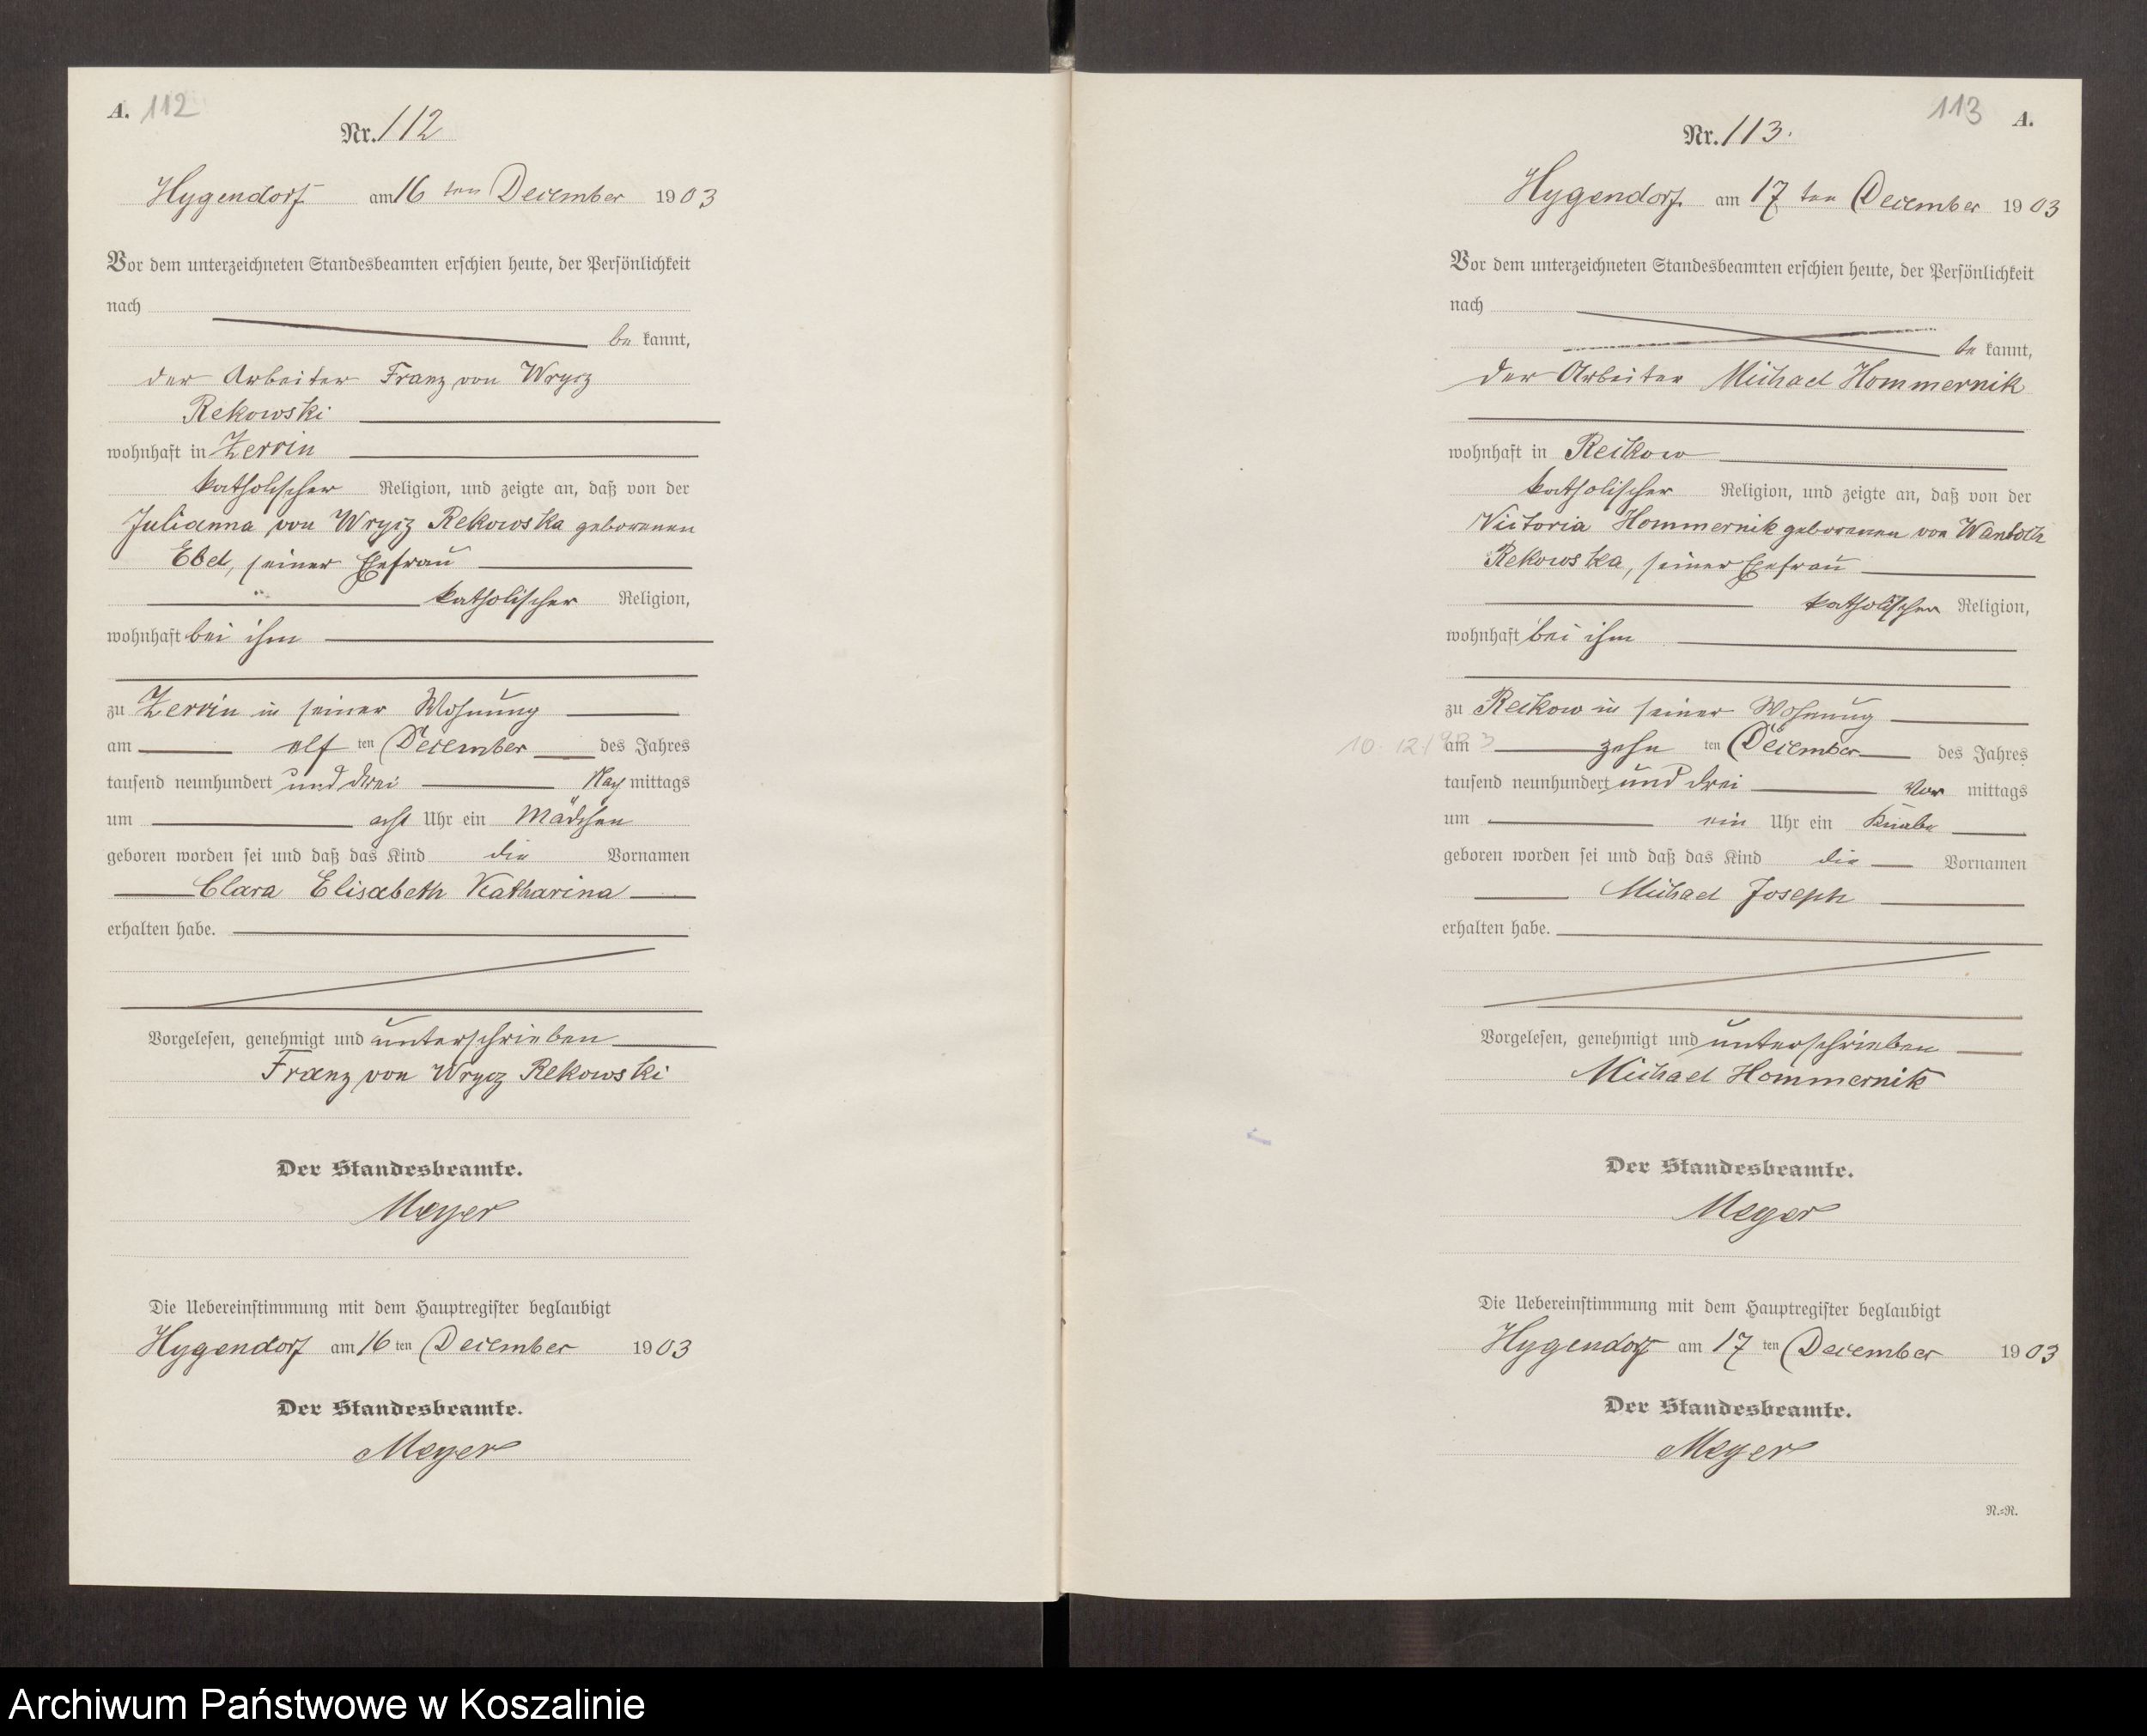 A. 112
Nr. 112
Hygendorf am 16 ten December 1903
Vor dem unterzeichneten Standesbeamten erschien heute, der Persönlichkeit
nach
be kannt,
der Arbeiter Franz von Wrycz
Rekowski
wohnhaft in Zerrin
katholischer Religion, und zeigte an, daß von der
Julianna von Wrycz Rekowska geborenen
Ebel, seiner Ehefrau
katholischer Religion,
wohnhaft bei ihm
zu Zerrin in seiner Wohnung
am elf ten December des Jahres
tausend neunhundert und drei Nach mittags
um acht Uhr ein Mädchen
geboren worden sei und daß das Kind die Vornamen
Clara Elisabeth Katharina
erhalten habe.
Vorgelesen, genehmigt und unterschrieben
Franz von Wrycz Rekowski
Der Standesbeamte.
Meyer
Die Uebereinstimmung mit dem Hauptregister beglaubigt
Hygendorf am 16 ten December 1903
Der Standesbeamte.
Meyer
113 A.
Nr. 113.
Hygendorf am 17 ten December 1903
Vor dem unterzeichneten Standesbeamten erschien heute, der Persönlichkeit
nach
be kannt,
der Arbeiter Michael Hommernik
wohnhaft in Reckow
katholischer Religion, und zeigte an, daß von der
Victoria Hommernik geborenen von Wantoch
Rekowska, seiner Ehefrau
katholischer Religion,
wohnhaft bei ihm
zu Reckow in seiner Wohnung
10.12.1903 am zehn ten December des Jahres
tausend neunhundert und drei Vor mittags
um ein Uhr ein Knabe
geboren worden sei und daß das Kind die Vornamen
Michael Joseph
erhalten habe.
Vorgelesen, genehmigt und unterschrieben
Michael Hommernik
Der Standesbeamte.
Meyer
Die Uebereinstimmung mit dem Hauptregister beglaubigt
Hygendorf am 17 ten December 1903
Der Standesbeamte.
Meyer
N.=N.
Archiwum Państwowe w Koszalinie